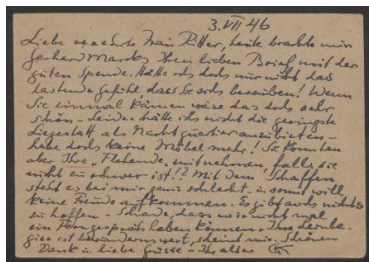 3. VII 46
Liebe verehrte Frau Ritter, heute brachte mir
Gerhard Marcks Ihren lieben Brief mit der
guten Spende. Hätte ich doch nur nicht das
lastende Gefühl, dass Sie sich berauben! Wenn
Sie einmal kämen wäre das doch sehr
schön – Leider hätte ich nicht die geringste
Liegestatt als Nachtquartier anzubieten –
habe doch keine Möbel mehr! Sie könnten
aber Ihre „ mitnehmen, falls sie
nicht zu schwer ist!? Mit dem Schaffen
steht es bei mir ganz schlecht. u. sonst will
keine Freude aufkommen. Es gibt auch nichts
zu hoffen – Schade, dass wir nicht mal
ein Ferngespräch haben können. Ihre Lernbe-
gier ist bewundernswert, scheint mir. Schönen
Dank u. liebe Grüsse – Ihr alter